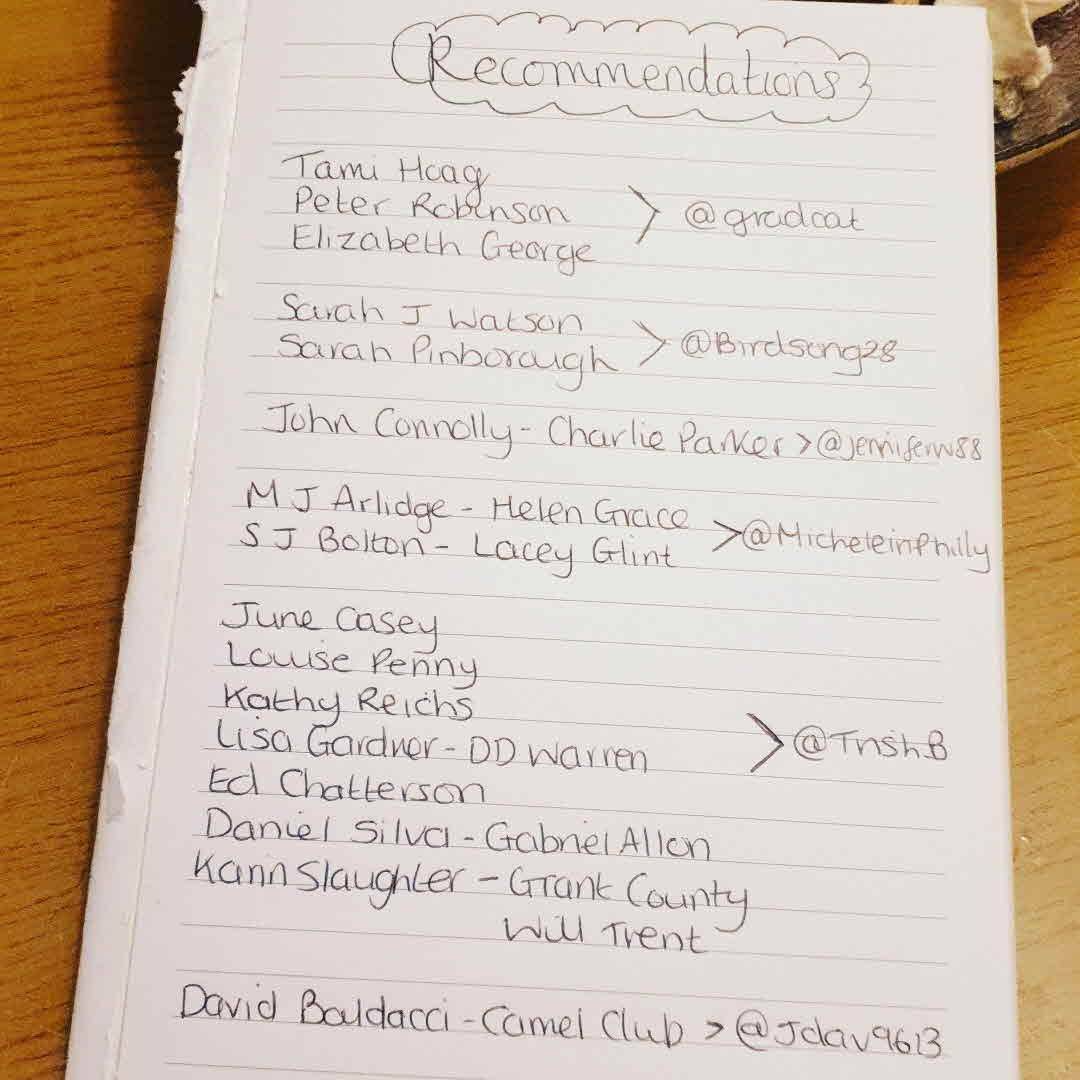 Recommendations
Tami Hoag
Peter Robinson
Elizabeth George
> @gradcat
Sarah J Watson
Sarah Pinboraugh
> @Birdsong28
John Connolly - Charlie Parker > @jennifernw88
M J Arlidge - Helen Grace
S J Bolton - Lacey Glint
> @MicheleinPhilly
June Casey
Louise Penny
Kathy Reichs
Lisa Gardner - DD Warren
Ed Chatterson
Daniel Silva - Gabriel Allon
Karin Slaughter - Grant County
Will Trent
> @TnshB
David Baldacci - Camel Club > @Jdav9613